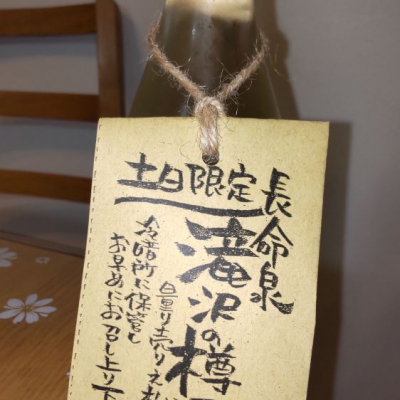 土日限定
長命泉
滝沢の樽
量り売り
冷暗所に保管し
お早めにお召し上り下